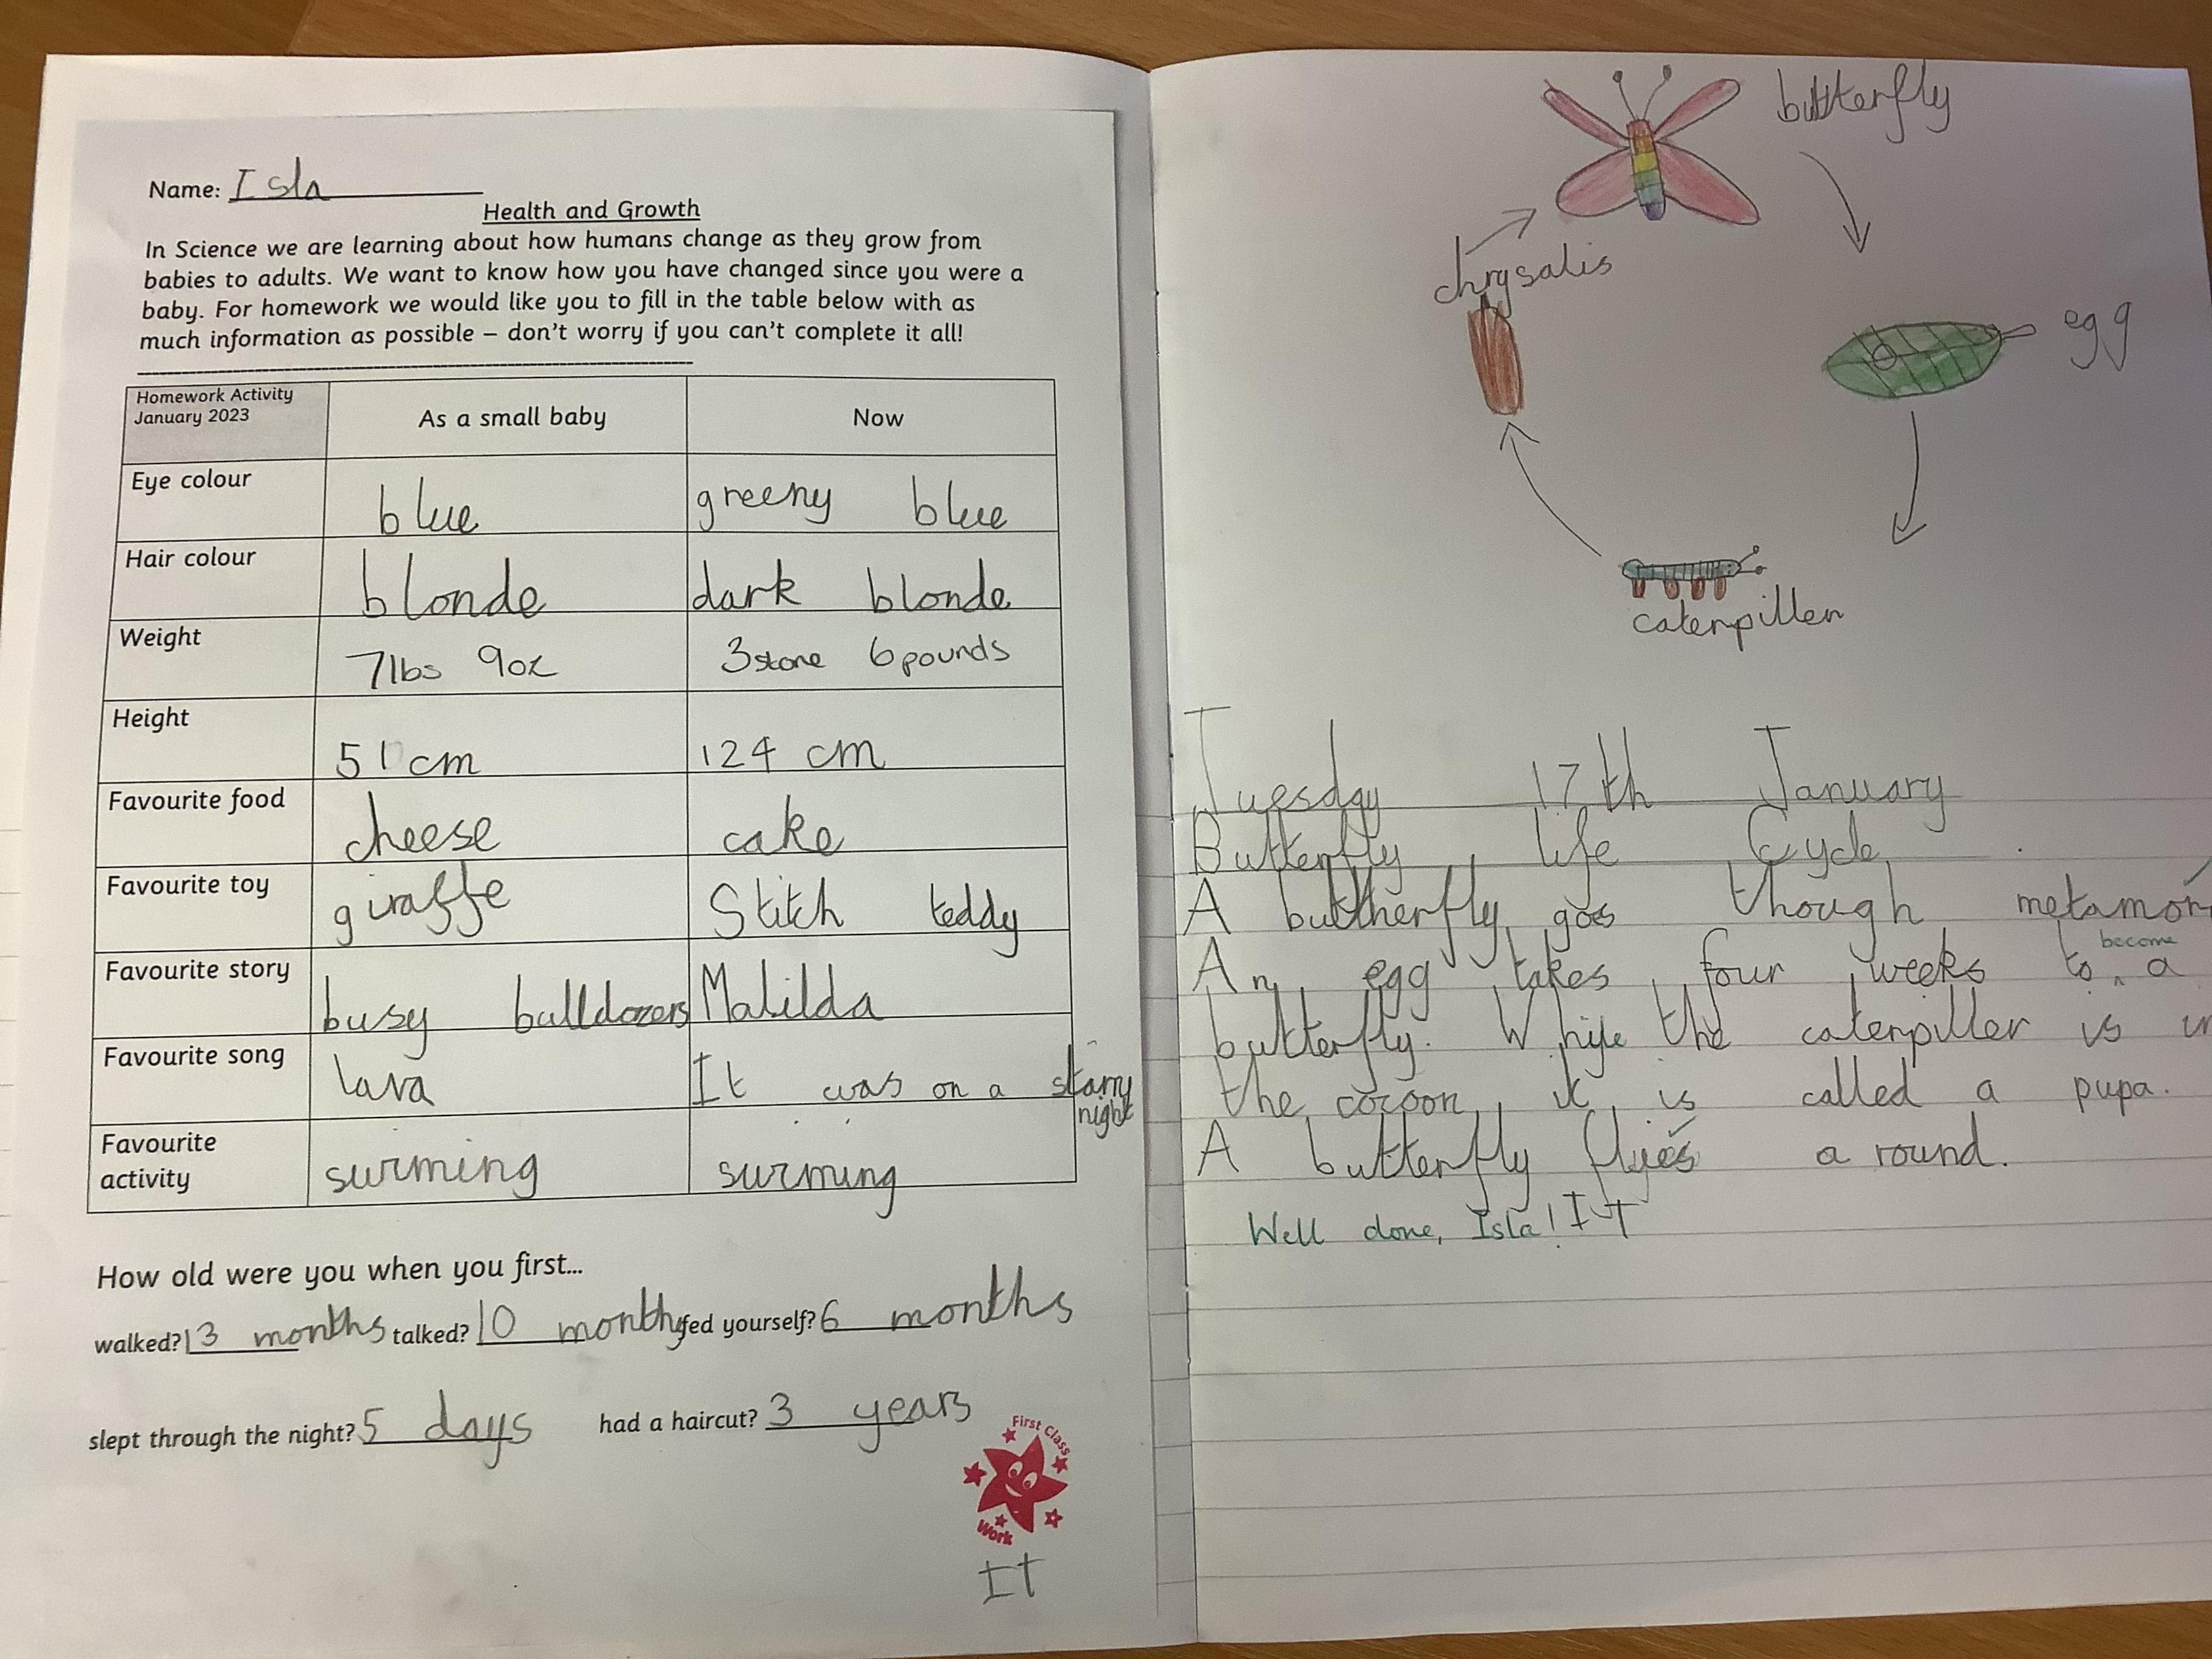 Name: Isla
Health and Growth
In Science we are learning about how humans change as they grow from
babies to adults. We want to know how you have changed since you were a
baby. For homework we would like you to fill in the table below with as
much information as possible – don't worry if you can't complete it all!
Homework Activity
January 2023
As a small baby
Now
Eye colour
blue
greeny blue
Hair colour
blonde
dark blonde
Weight
7lbs 9oz
3stone 6pounds
Height
51cm
124 cm
Favourite food
cheese
cake
Favourite toy
giraffe
Stitch teddy
Favourite story
busy bulldozers
Matilda
Favourite song
lava
It was on a starry
night
Favourite
activity
swiming
swiming
How old were you when you first...
walked? 13 months talked? 10 months fed yourself? 6 months
slept through the night? 5 days had a haircut? 3 years
First Class
Work
IT
butterfly
chrysalis
egg
caterpiller
Tuesday 17th January
Butterfly life Cycle
A buttherfly goes though metamor
An egg takes four weeks to become a
butterfly. While the caterpiller is in
the cocoon it is called a pupa.
A butterfly flyies a round.
Well done, Isla! IT